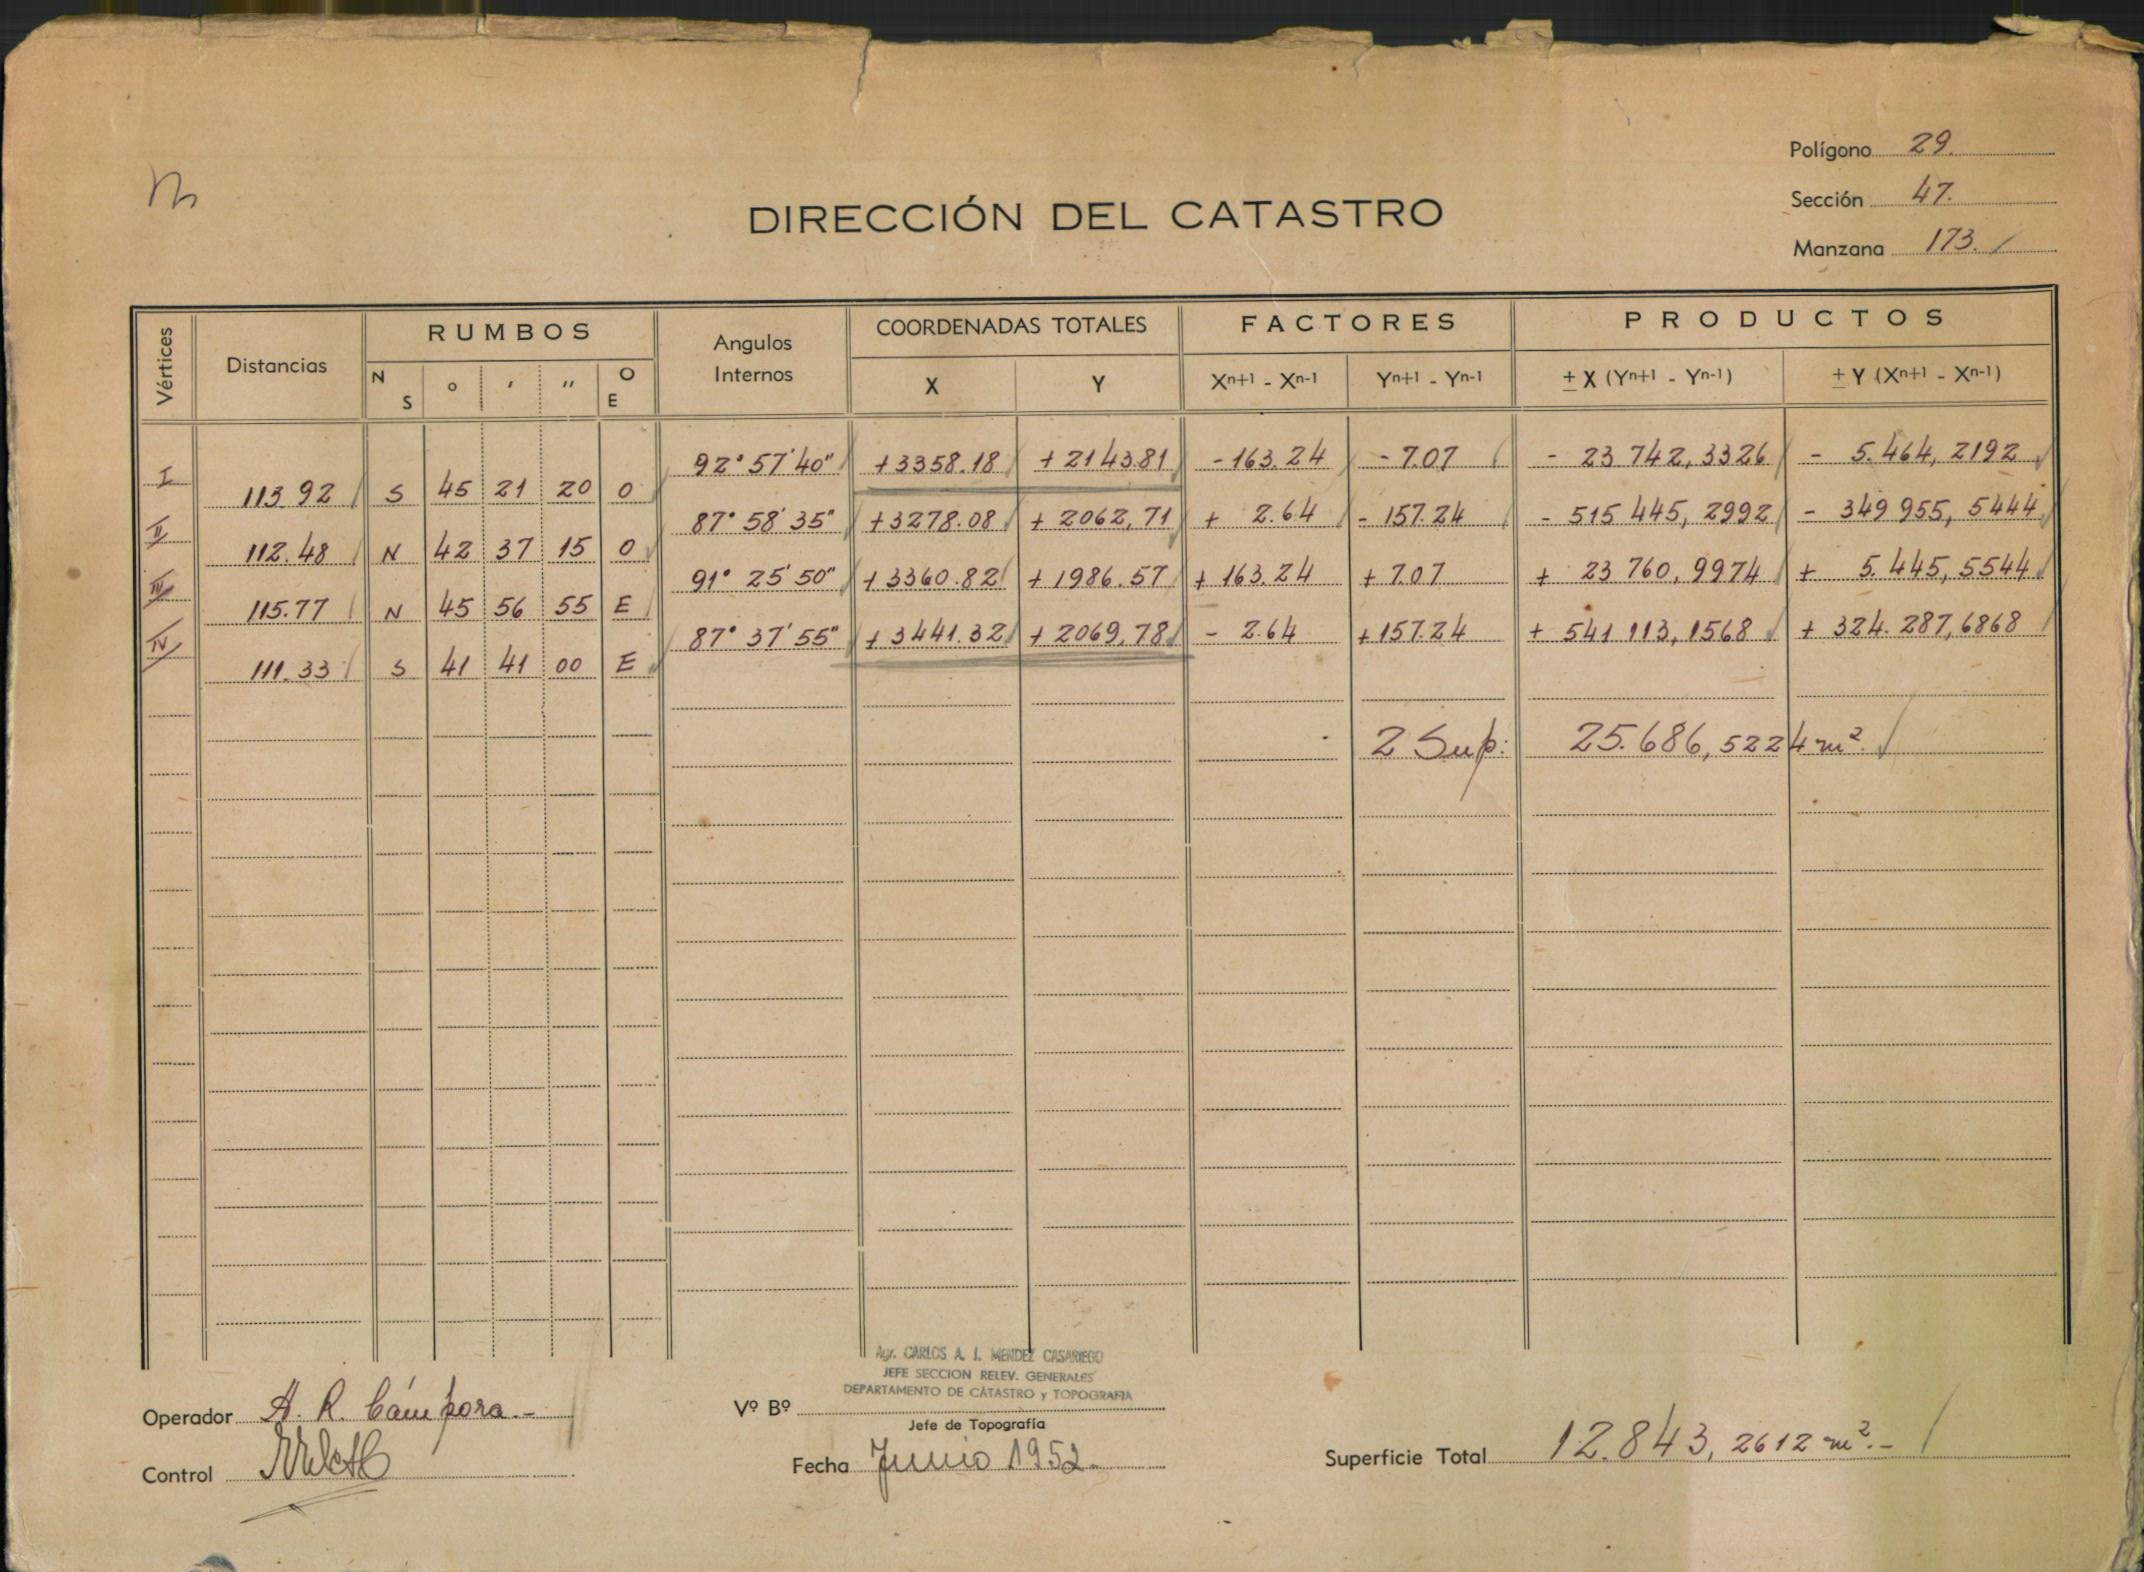 Polígono 29.
Sección 47.
Manzana 173.
DIRECCIÓN DEL CATASTRO
Vértices Distancias RUMBOS Angulos Internos COORDENADAS TOTALES FACTORES PRODUCTOS
N S ° ′ ″ O E X Y Xn+1 - Xn-1 Yn+1 - Yn-1 ± X (Yn+1 - Yn-1) ± Y (Xn+1 - Xn-1)
I 92° 57' 40" +3358.18 +2143.81 -163.24 -7.07 - 23 742,3326 - 5.464,2192
113.92 S 45 21 20 O
II 87° 58' 35" +3278.08 +2062,71 + 2.64 -157.24 - 515 445,2992 - 349 955,5444
112.48 N 42 37 15 O
III 91° 25' 50" +3360.82 +1986.57 +163.24 +7.07 + 23 760,9974 + 5.445,5544
115.77 N 45 56 55 E
IV 87° 37' 55" +3441.32 +2069,78 - 2.64 +157.24 + 541 113,1568 + 324.287,6868
111.33 S 41 41 00 E
2 Sup: 25.686,5224 m²
Agr. CARLOS A. J. MENDEZ CASARIEGO
JEFE SECCION RELEV. GENERALES
DEPARTAMENTO DE CATASTRO y TOPOGRAFIA
Operador A. R. Cámpora.-
Vº Bº
Jefe de Topografía
Control
Fecha Junio 1952.-
Superficie Total 12.843,2612 m².-